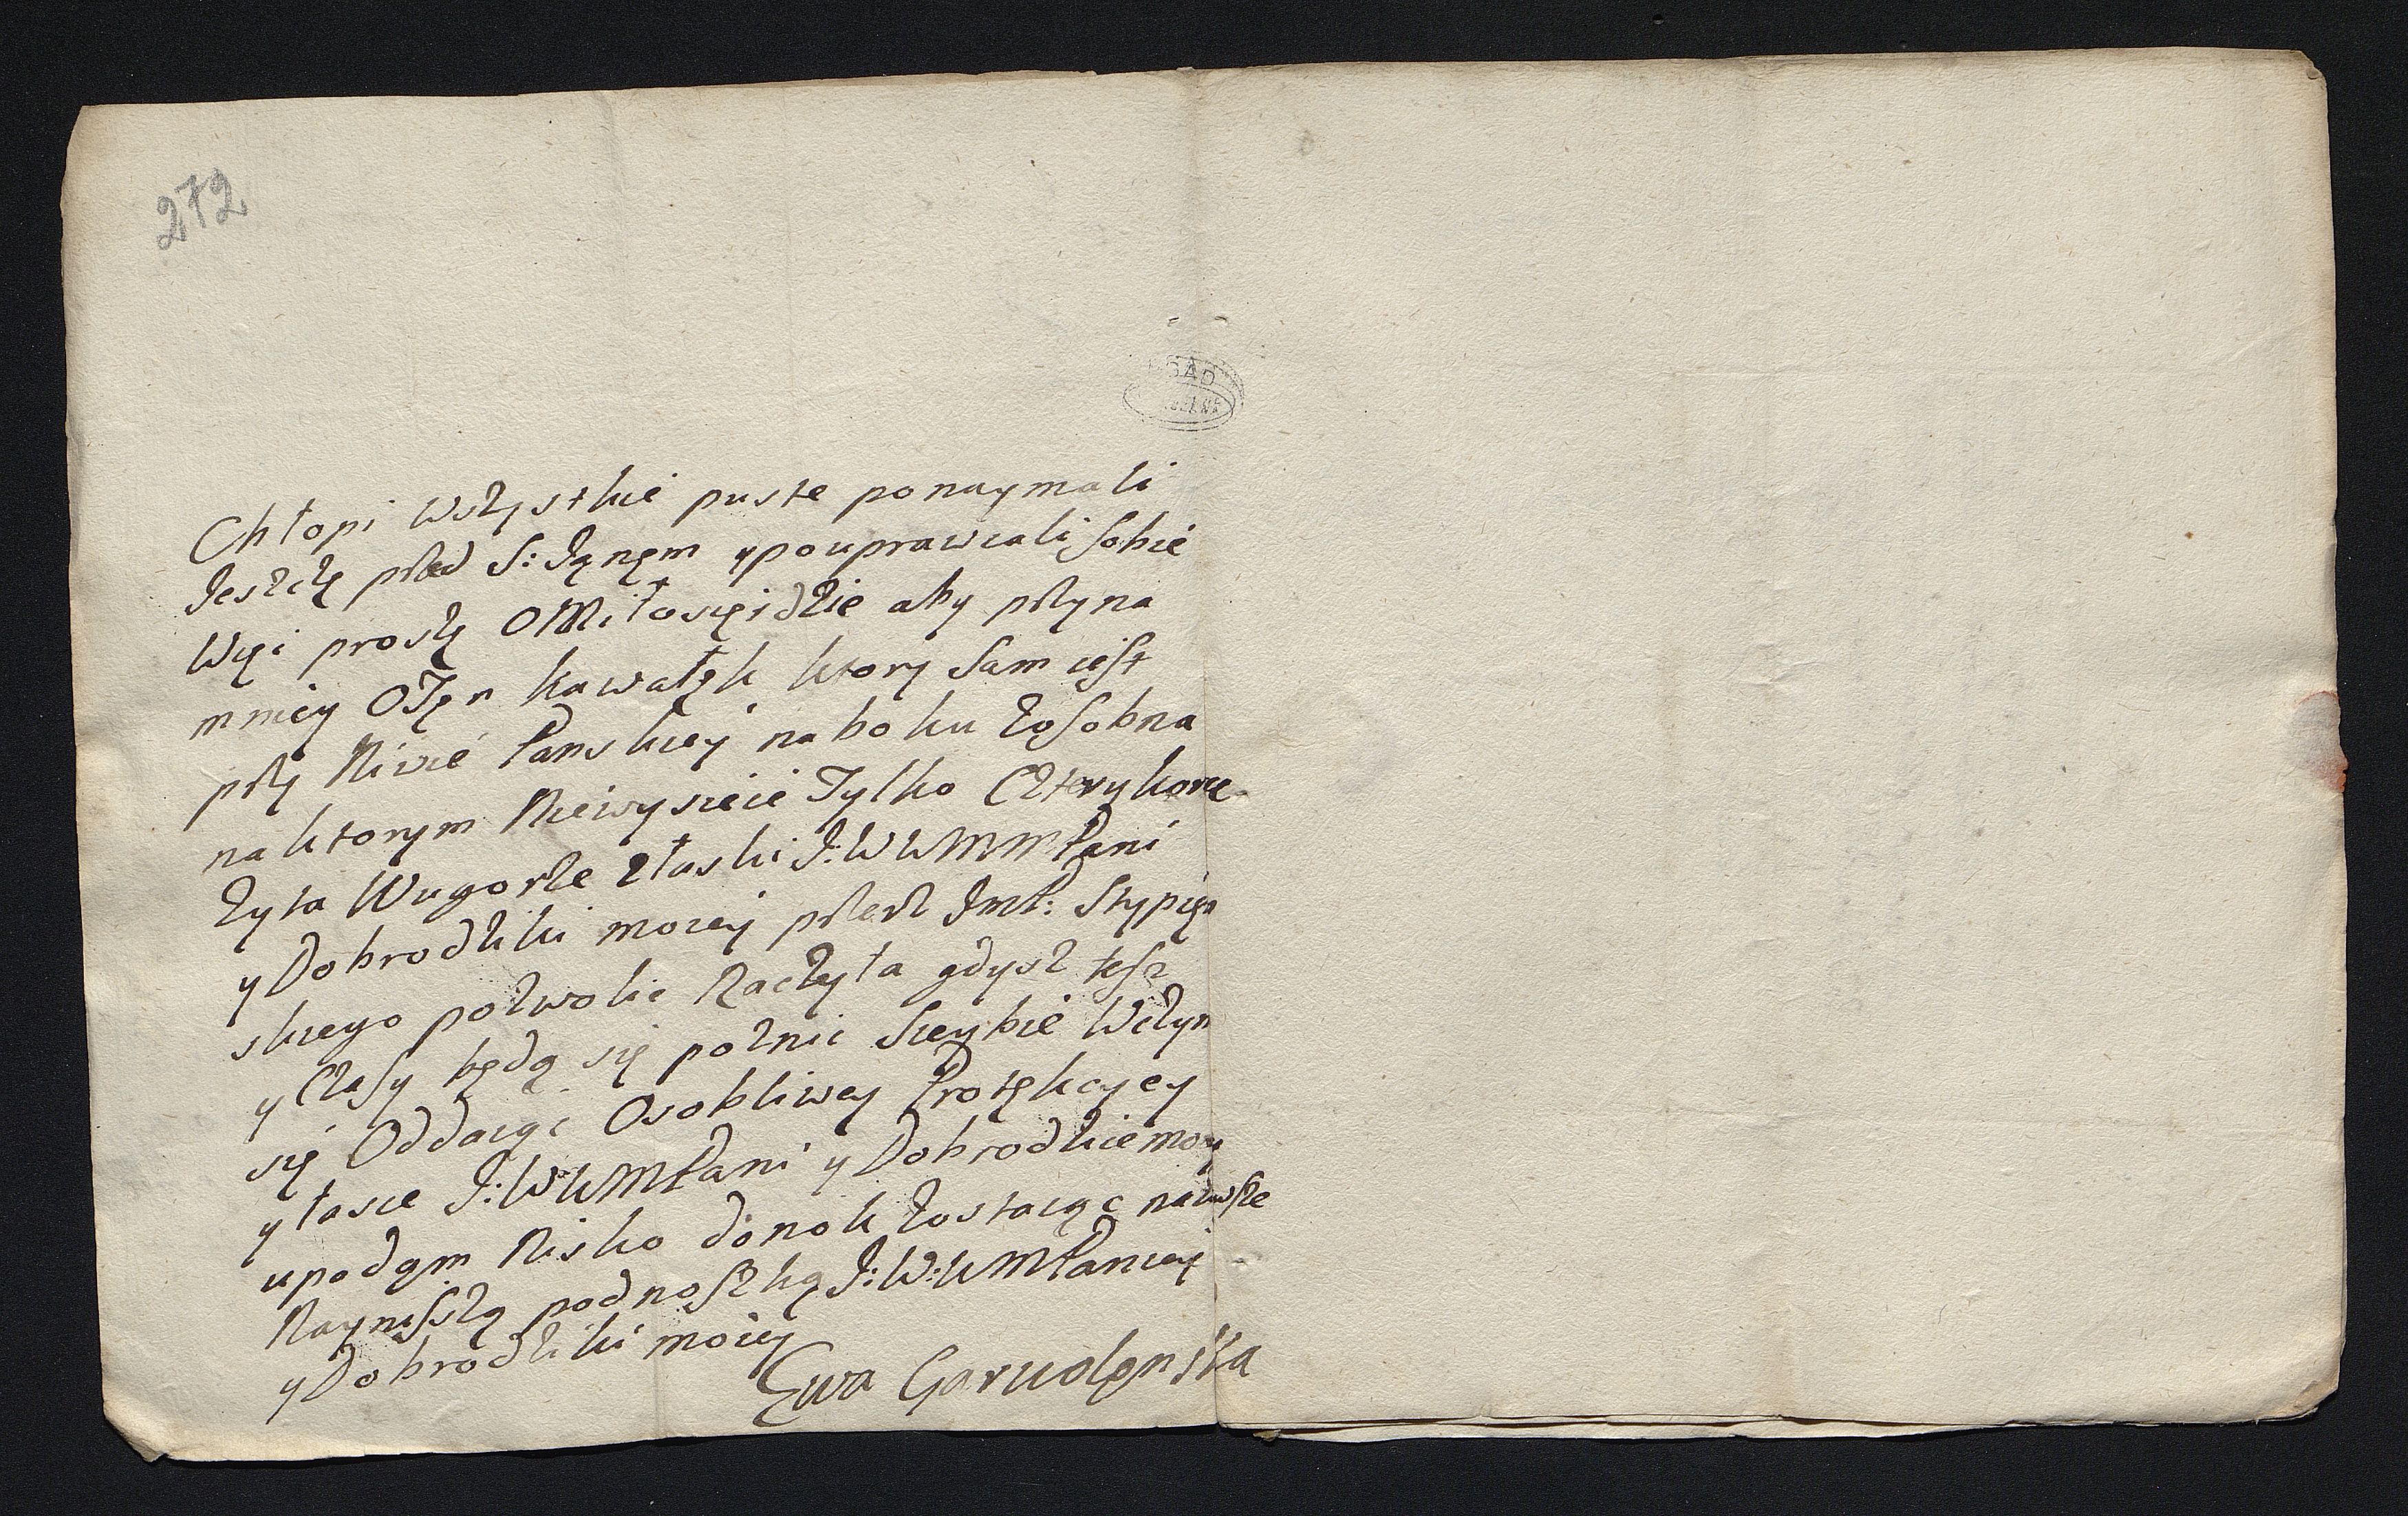 272
AGAD
Chłopi Wszystkie puste ponaymali
Jeszczę przed S: Jąnęm ypouprawiali sobie
Więc proszę O Miłosięrdzie aby przyna
mniey O Tęn kawałęk ktory Sam iest
przy Niwie Panskiey naboku zosobna
naktorym Niewysieie Tylko Cztery korce
Zyta Wugorze złaski J:WWMMPani
y Dobrodziki moiey przesz JmP: Stypięn
skiego pozwolic Raczyła gdysz tesz
y Czasy będą się poznic Sieybie Wczym
się Oddaiąc Osobliwey Protękcyey
y łasce J:WWMPani y Dobrodzice moiey
upadąm Nisko donok Zostaiąc nawsze
Nayniszszą podnoszką J:W:WMPaniey
y Dobrodziki moiey
Ewa Garwolęnska